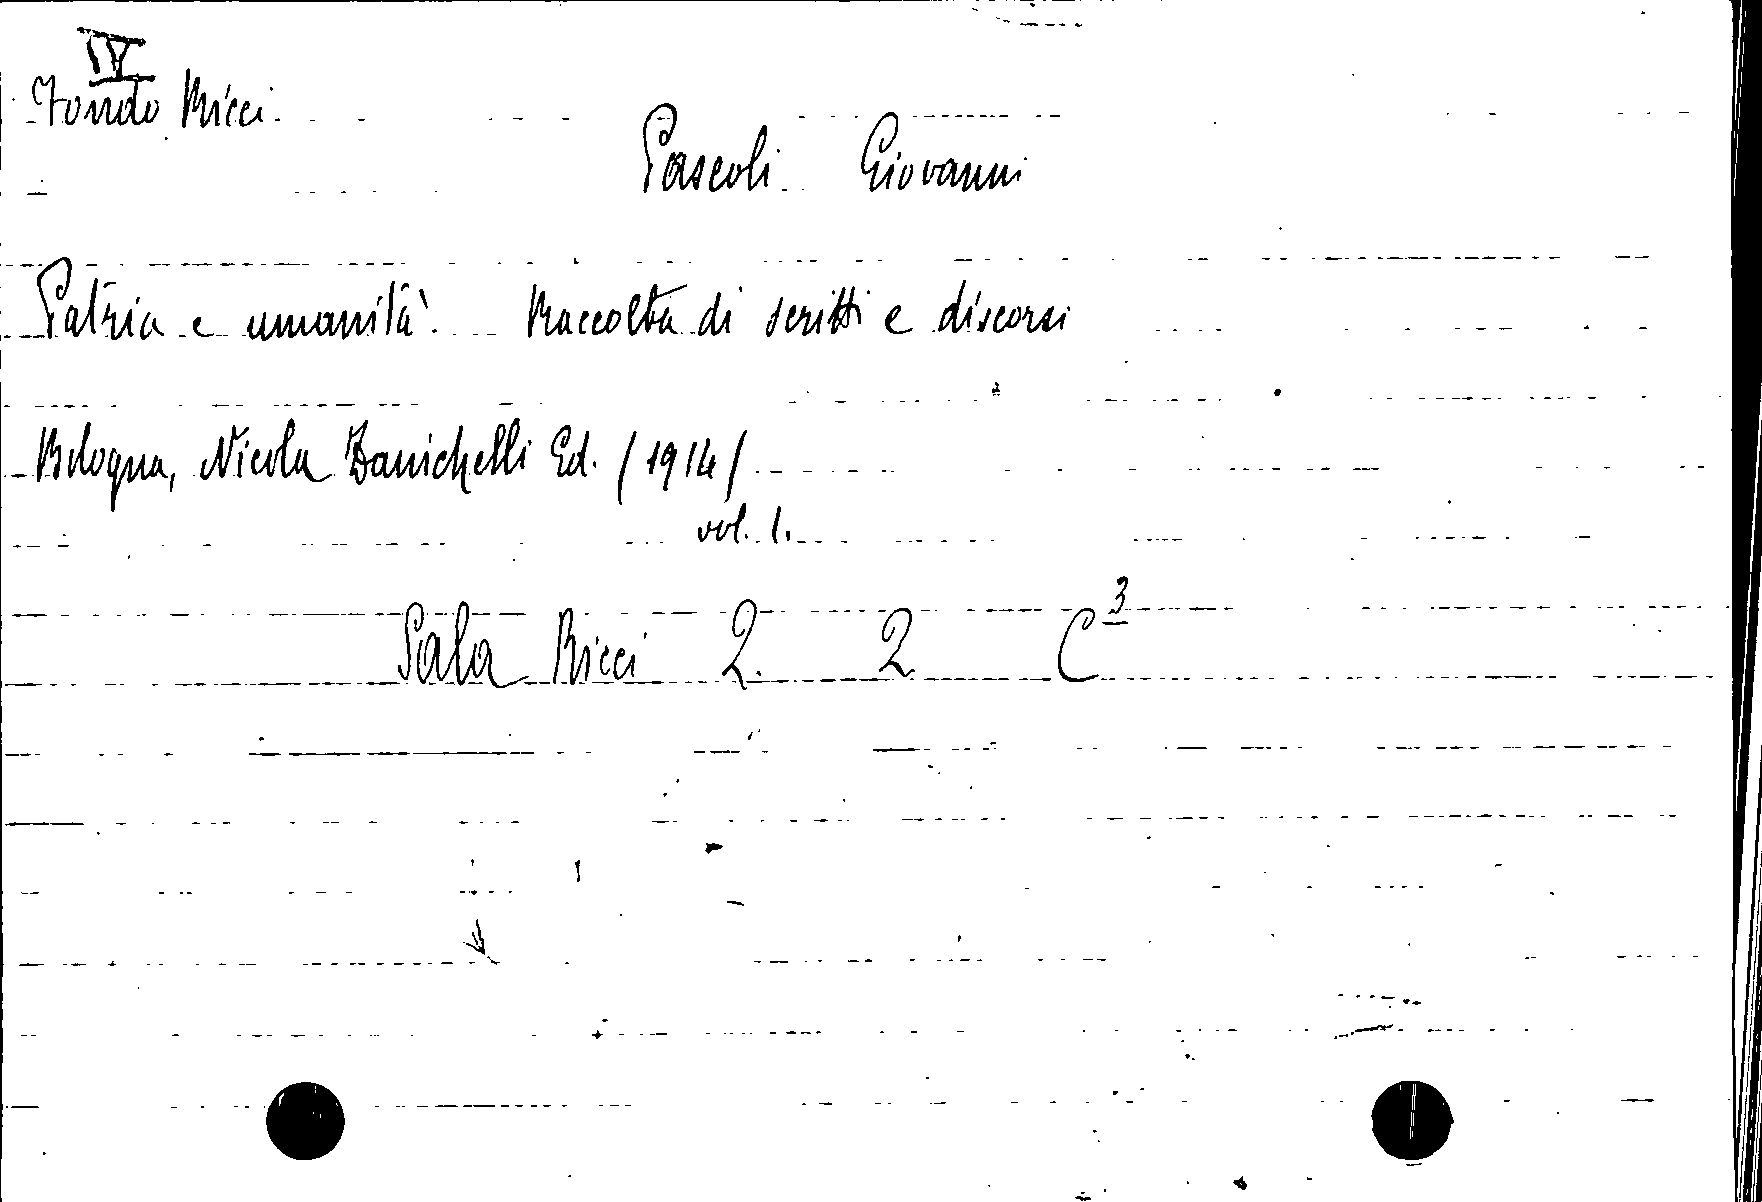 IV
Fondo Ricci
Pascoli Giovanni
Patria e umanità. Raccolta di scritti e discorsi
Bologna, Nicola Zanichelli Ed. (1914)
vol. 1.
Sala Ricci 2. 2 C³